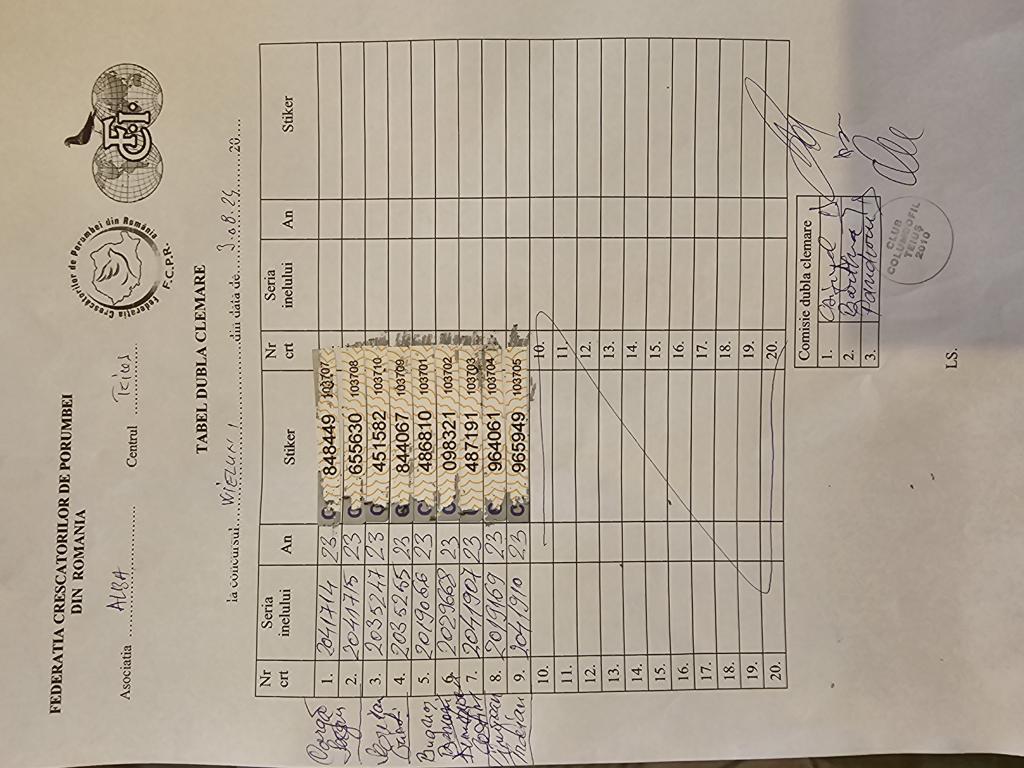 FEDERATIA CRESCATORILOR DE PORUMBEI
DIN ROMANIA
Federația Crescătorilor de Porumbei din România
F.C.P.R.
FCI
Asociatia ALBA Centrul Teiuș
TABEL DUBLA CLEMARE
la concursul WIELUN 1 din data de 3.08.24 20
Nr crt Seria inelului An Stiker Nr crt Seria inelului An Stiker
1. 2041714 23 C 848449 103707
2. 2041715 23 C 655630 103708
3. 2035247 23 C 451582 103710
4. 2035255 23 C 844067 103709
5. 2019066 23 C 486810 103701
6. 2029668 23 C 098321 103702
7. 2041907 23 487191 103703
8. 2019169 23 C 964061 103704
9. 2041910 23 C 965949 103705
10. 10.
11. 11.
12. 12.
13. 13.
14. 14.
15. 15.
16. 16.
17. 17.
18. 18.
19. 19.
20. 20.
Comisie dubla clemare
1.
2.
3.
CLUB
COLUMBOFIL
TEIUȘ
2010
LS.